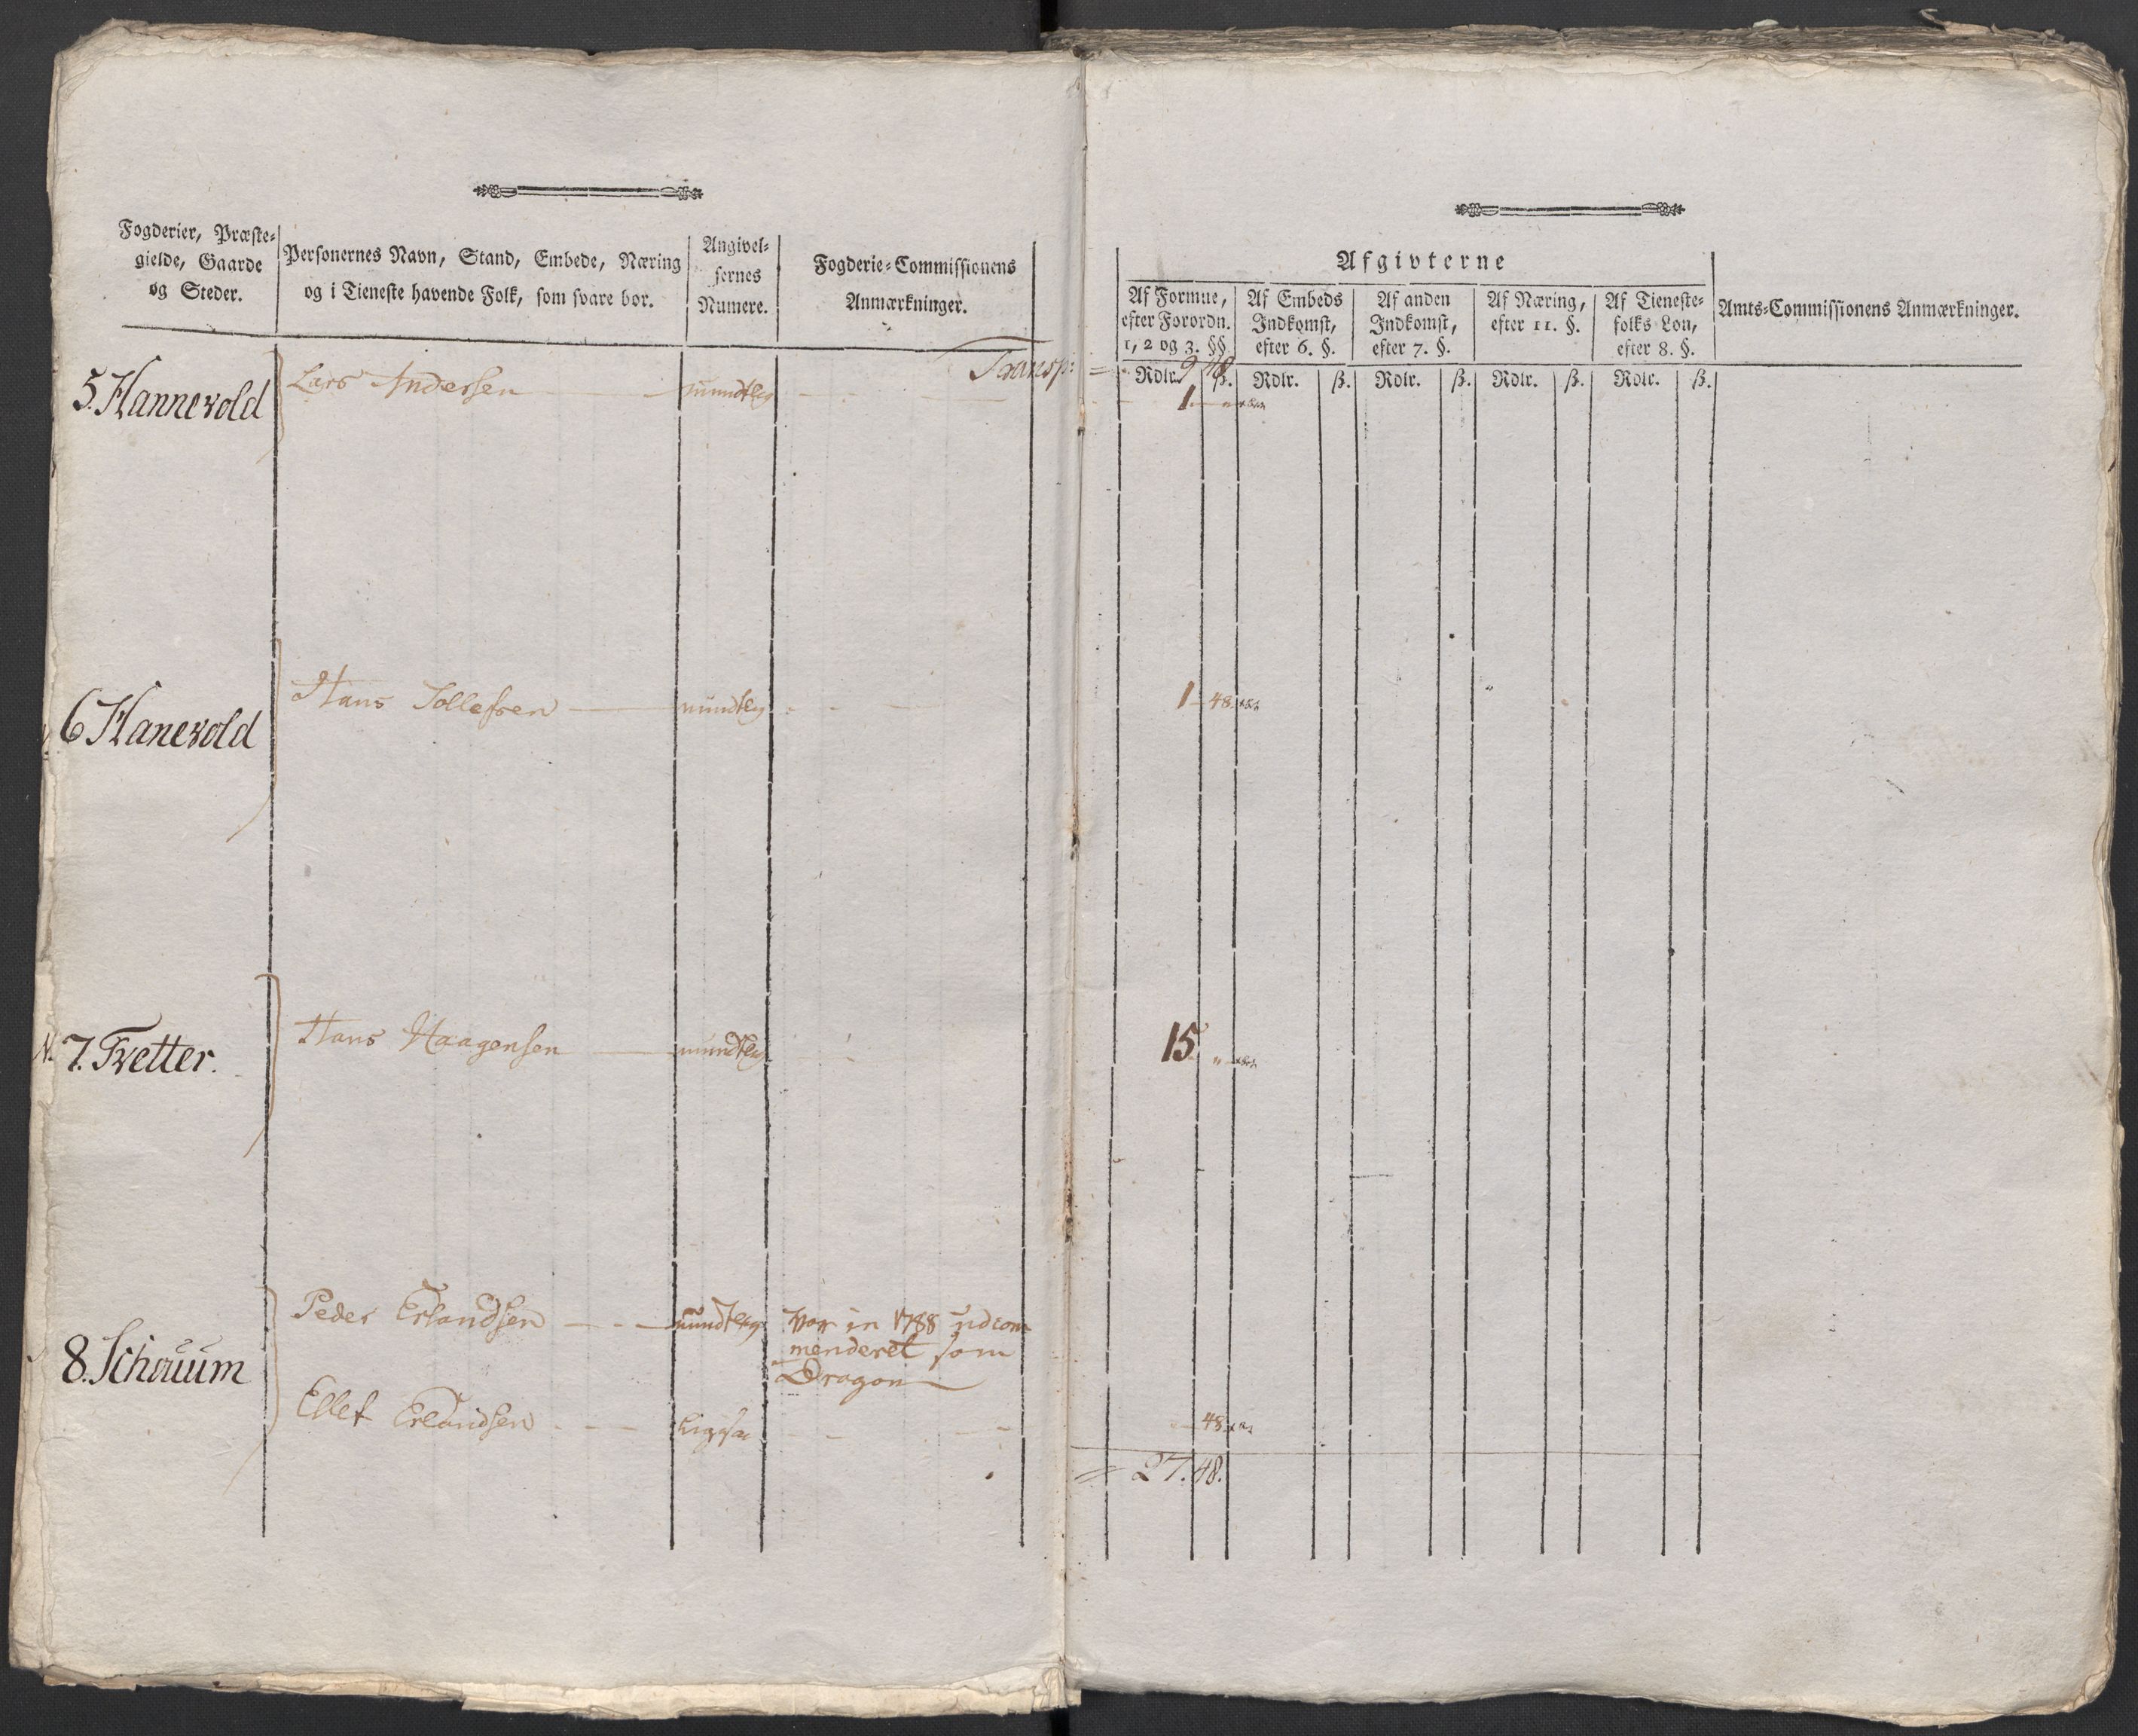 Fogderier, Præste-
gielde, Gaarde
og Steder.
Personernes Navn, Stand, Embede, Næring
og i Tieneste havende Folk, som svare bør.
Angivel-
sernes
Numere.
Fogderie-Commissionens
Anmærkninger.
Afgivterne
Af Formue,
efter Forordn.
1, 2 og 3. §§
Af Embeds
Indkomst,
efter 6. §.
Af anden
Indkomst,
efter 7. §.
Af Næring,
efter 11. §.
Af Tieneste-
folks Løn,
efter 8. §.
Amts-Commissionens Anmærkninger.
Rdlr. ß. Rdlr. ß. Rdlr. ß. Rdlr. ß. Rdlr. ß.
Transp: 9 48
5. Hannevold Lars Andersen mundtlig 1 "
6 Hanevold Hans Tollefsen mundtlig 1 48
N. 7. Tvetter. Hans Haagensen mundtlig 15 "
8. Schauum Peder Erlandsen mundtlig Var in 1788 udcom
menderet som
Dragon
Ellef Erlandsen Ligesaa 48
27. 48.